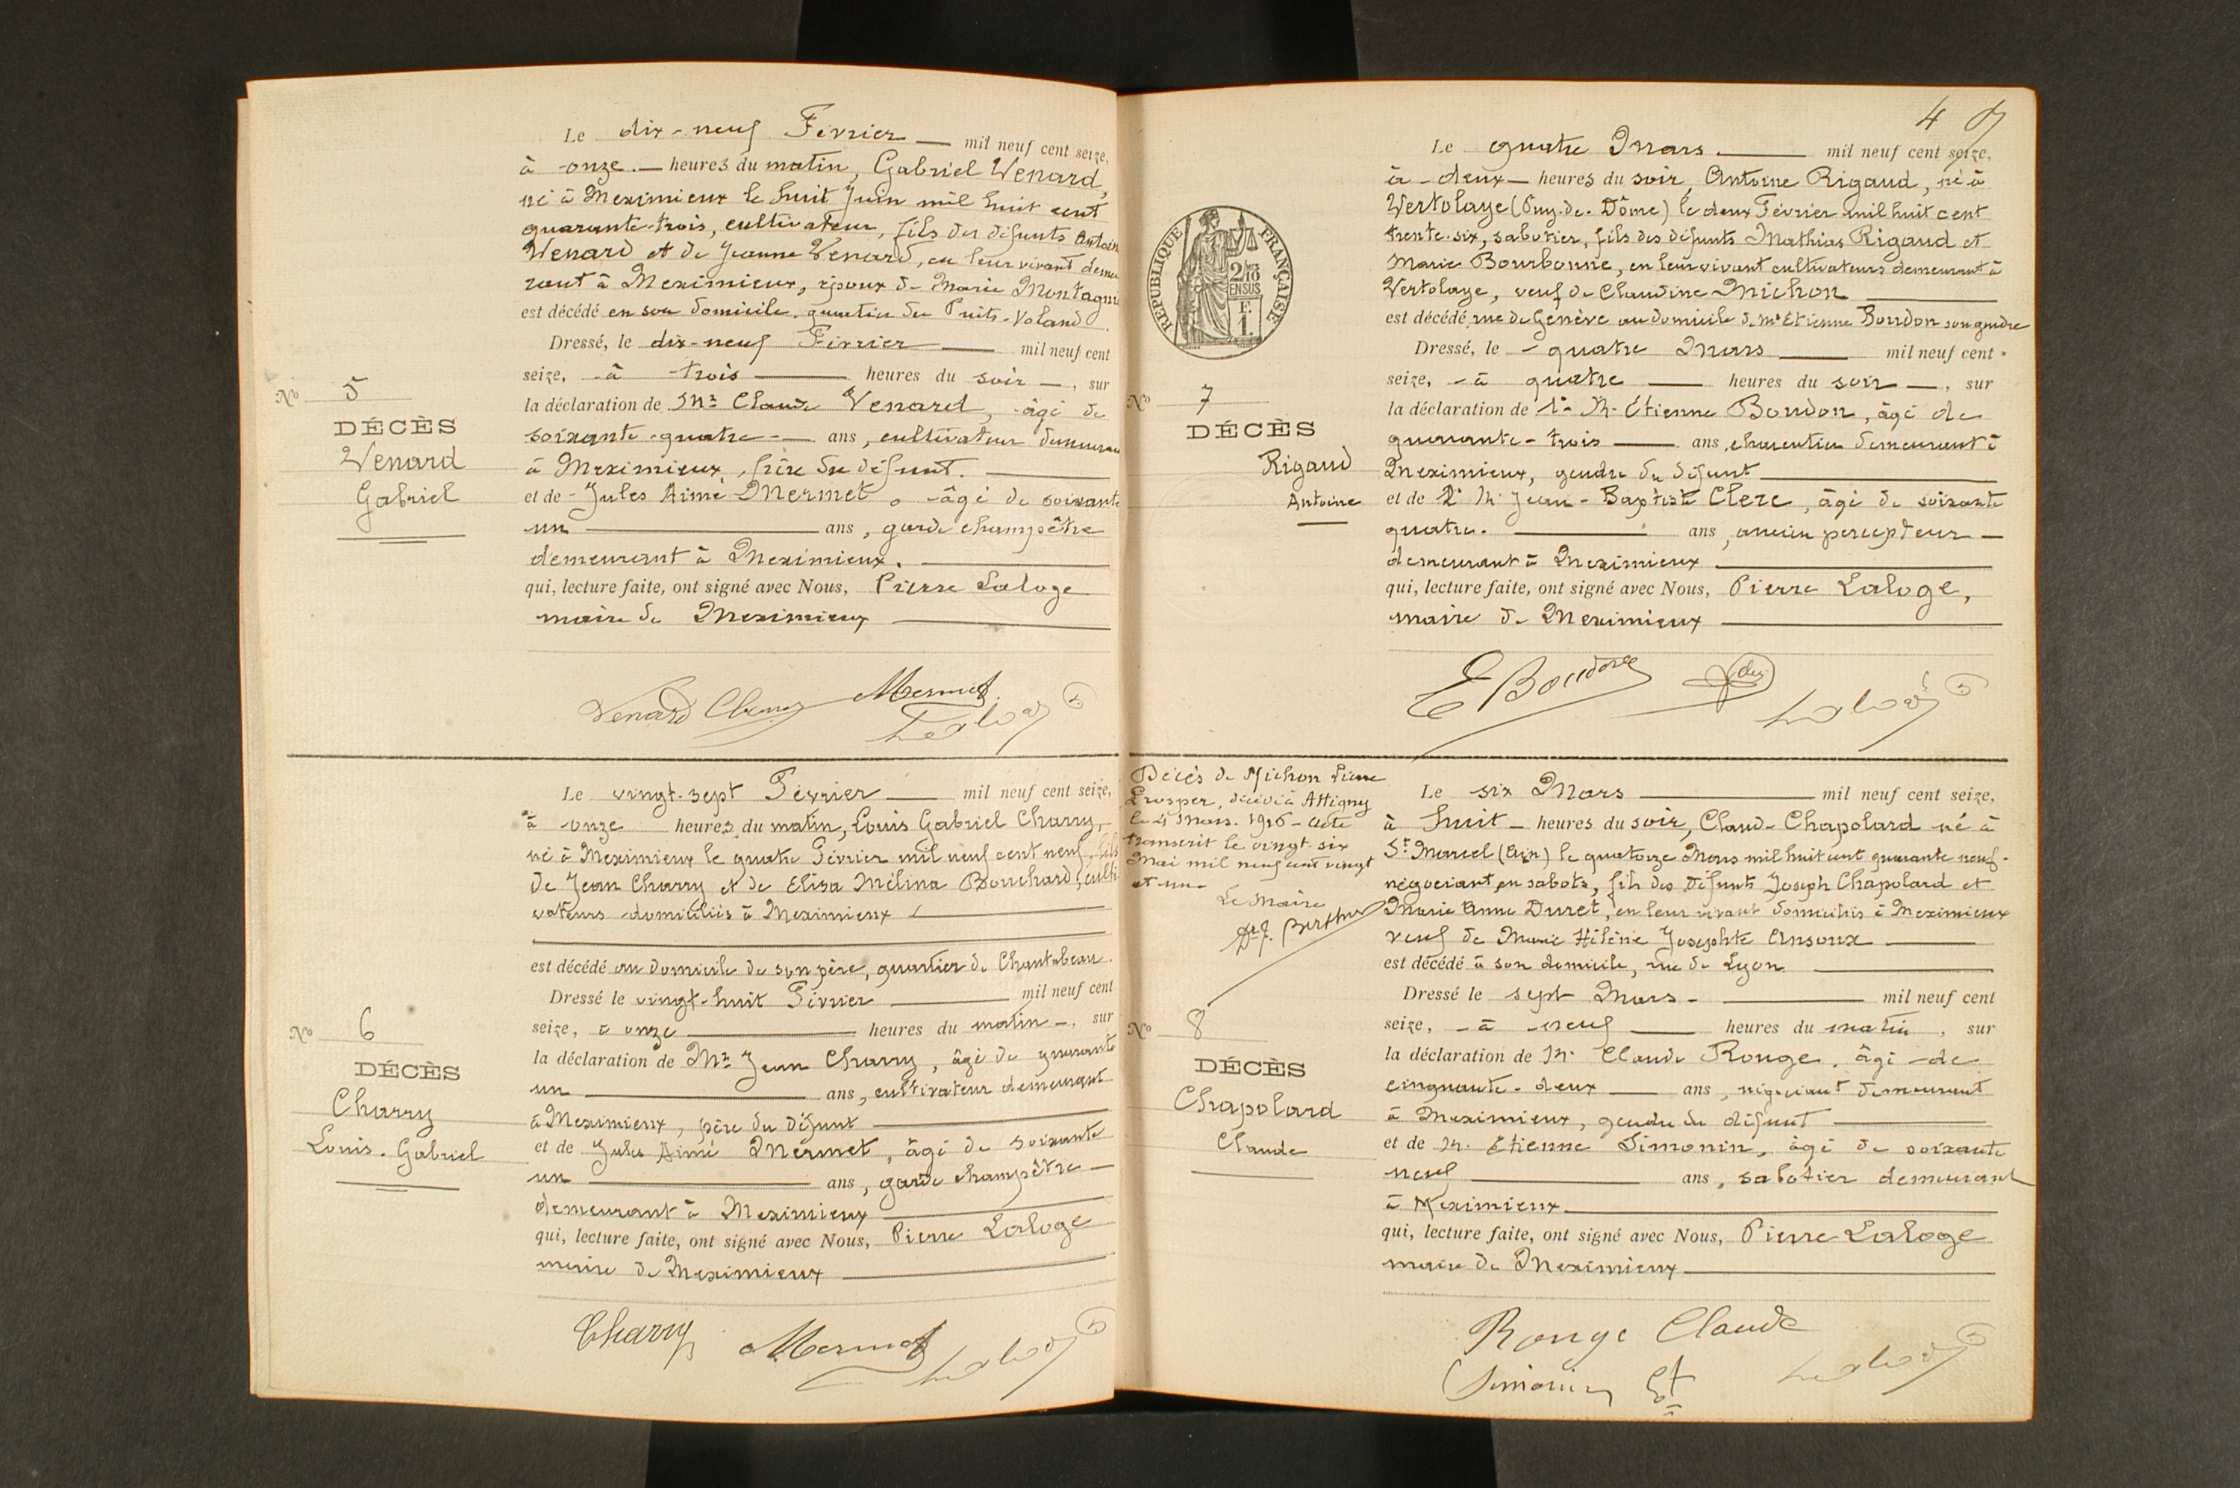 Le dix-neuf Février — mil neuf cent seize,
à onze — heures du matin, Gabriel Venard,
né à Meximieux le huit Juin mil huit cent
quarante-trois, cultivateur, fils des défunts Antoin
Venard et de Jeanne Venard, en leur vivant demeu
rant à Meximieux, époux de Marie Montagni
est décédé en son domicile, quartier du Puits-Voland.
Dressé, le dix-neuf Février — mil neuf cent
seize, à trois — heures du soir —, sur
la déclaration de Mr Claude Venard, âgé de
soixante-quatre — ans, cultivateur demeuran
à Meximieux, frère du défunt. —
et de Jules Aimé Mermet, âgé de soixante
un — ans, garde champêtre
demeurant à Meximieux. —
qui, lecture faite, ont signé avec Nous, Pierre Laloge
maire de Meximieux —
No 5
DÉCÈS
Venard
Gabriel
Venard Claude Mermet
Laloge
Le vingt-sept Février — mil neuf cent seize,
à onze heures du matin, Louis Gabriel Charry,
né à Meximieux le quatre Février mil neuf cent neuf, fils
de Jean Charry et de Elisa Mélina Bouchard, culti
vateurs domiciliés à Meximieux —
est décédé au domicile de son père, quartier de Chantabeau.
Dressé le vingt-huit Février — mil neuf cent
seize, à onze — heures du matin —, sur
la déclaration de Mr Jean Charry, âgé de quarante
un — ans, cultivateur demeurant
à Meximieux, père du défunt —
et de Jules Aimé Mermet, âgé de soixante
un — ans, garde champêtre —
demeurant à Meximieux —
qui, lecture faite, ont signé avec Nous, Pierre Laloge
maire de Meximieux —
No 6
DÉCÈS
Charry
Louis-Gabriel
Charry Mermet Laloge
4
Le quatre Mars — mil neuf cent seize,
à deux — heures du soir, Antoine Rigaud, né à
Vertolaye (Puy-de-Dôme) le deux Février mil huit cent
trente-six, sabotier, fils des défunts Mathias Rigaud et
Marie Bourbonne, en leur vivant cultivateurs demeurant à
Vertolaye, veuf de Claudine Michon —
est décédé, rue de Genève au domicile de Mr Etienne Boudon son gendre
Dressé, le quatre Mars — mil neuf cent
seize, à quatre — heures du soir —, sur
la déclaration de 1° M. Etienne Boudon, âgé de
quarante-trois — ans, charcutier demeurant à
Meximieux, gendre du défunt —
et de 2° M. Jean-Baptiste Clerc, âgé de soixante
quatre. — ans, ancien percepteur —
demeurant à Meximieux —
qui, lecture faite, ont signé avec Nous, Pierre Laloge,
maire de Meximieux —
RÉPUBLIQUE FRANÇAISE
2/10 EN SUS
1 F.
No 7
DÉCÈS
Rigaud
Antoine
E Boudon Laloge
Décès de Michon Pierre
Prosper, décédé à Attigny
le 4 Mars 1916 - Acte
transcrit le vingt-six
Mai mil neuf cent vingt
et un -
Le Maire
Dr J. Berthier
Le six Mars — mil neuf cent seize,
à huit — heures du soir, Claude Chapolard né à
St Marcel (Ain) le quatorze Mars mil huit cent quarante neuf -
négociant en sabots, fils des défunts Joseph Chapolard et
Marie Anne Duret, en leur vivant domiciliés à Meximieux
veuf de Marie Hélène Josephte Ansoux —
est décédé à son domicile, rue de Lyon —
Dressé le sept Mars — mil neuf cent
seize, à neuf — heures du matin, sur
la déclaration de M. Claude Rouge, âgé de
cinquante-deux — ans, négociant demeurant
à Meximieux, gendre du défunt —
et de M. Etienne Simonin, âgé de soixante
neuf — ans, sabotier demeurant
à Meximieux —
qui, lecture faite, ont signé avec Nous, Pierre Laloge
maire de Meximieux —
No 8
DÉCÈS
Chapolard
Claude
Rouge Claude
Simonin Et Laloge